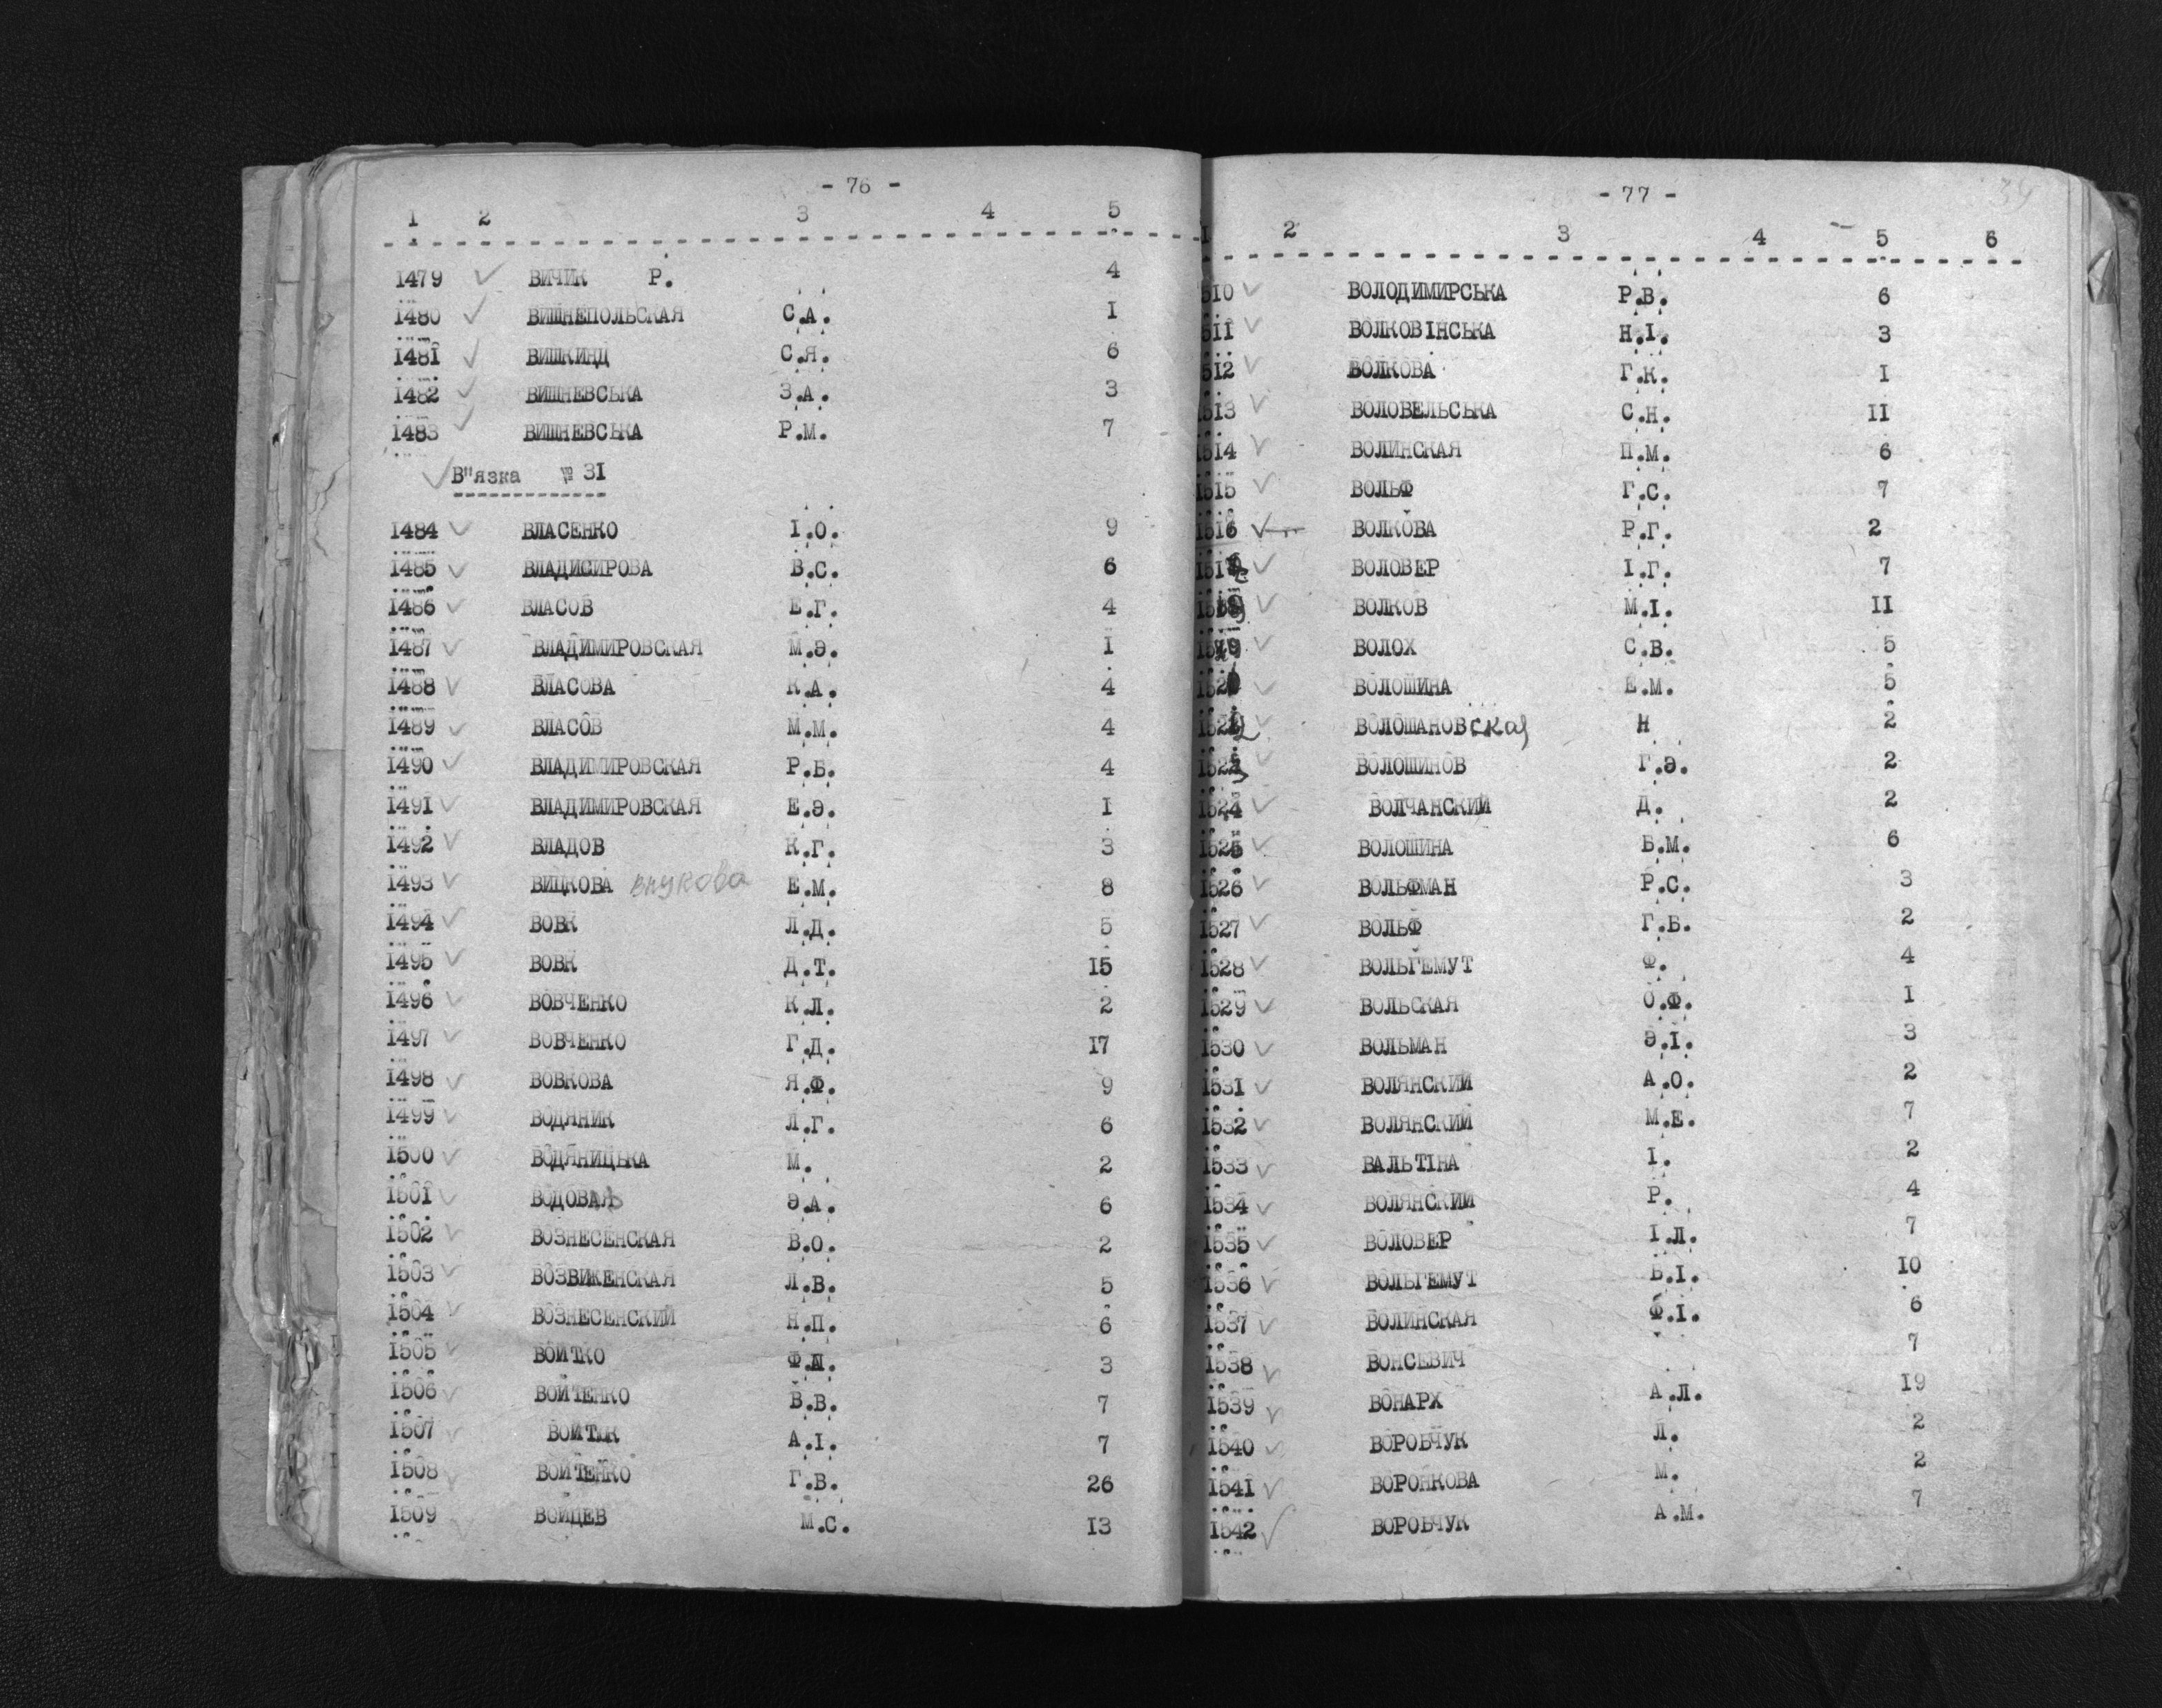 - 76 -
1 2 3 4 5
1479 ВИЧИК Р. 4
1480 ВИШНЕПОЛЬСКАЯ С.А. I
1481 ВИШКИНД С.Я. 6
1482 ВИШНЕВСЬКА З.А. 3
1483 ВИШНЕВСЬКА Р.М. 7
В"язка № 31
1484 ВЛАСЕНКО І.О. 9
1485 ВЛАДИСИРОВА В.С. 6
1486 ВЛАСОВ Е.Г. 4
1487 ВЛАДИМИРОВСКАЯ М.Э. I
1488 ВЛАСОВА К.А. 4
1489 ВЛАСОВ М.М. 4
1490 ВЛАДИМИРОВСКАЯ Р.Б. 4
1491 ВЛАДИМИРОВСКАЯ Е.Э. I
1492 ВЛАДОВ К.Г. 3
1493 ВИЦКОВА внукова Е.М. 8
1494 ВОВК Л.Д. 5
1495 ВОВК Д.Т. 15
1496 ВОВЧЕНКО К.Л. 2
1497 ВОВЧЕНКО Г.Д. 17
1498 ВОВКОВА Я.Ф. 9
1499 ВОДЯНИК Л.Г. 6
1500 ВОДЯНИЦЬКА М. 2
1501 Э.А. 6
1502 ВОЗНЕСЕНСКАЯ В.О. 2
1503 ВОЗВИЖЕНСКАЯ Л.В. 5
1504 ВОЗНЕСЕНСКИЙ Н.П. 6
1505 ВОИТКО 3
1506 ВОЙТЕНКО В.В. 7
1507 А.І. 7
1508 ВОЙТЕНКО Г.В. 26
1509 ВОЙЦЕВ М.С. 13
- 77 -
1 2 3 4 5 6
510 ВОЛОДИМИРСЬКА Р.В. 6
511 ВОЛКОВІНСЬКА Н.І. 3
512 ВОЛКОВА Г.К. I
1513 ВОЛОВЕЛЬСЬКА С.Н. II
1514 ВОЛИНСКАЯ П.М. 6
1515 ВОЛЬФ Г.С. 7
1516 ВОЛКОВА Р.Г. 2
ВОЛОВЕР І.Г. 7
ВОЛКОВ М.І. II
ВОЛОХ С.В. 5
ВОЛОШИНА Е.М. 5
ВОЛОШАНОВская Н 2
ВОЛОШИНОВ Г.Э. 2
1524 ВОЛЧАНСКИЙ Д. 2
1525 ВОЛОШИНА Б.М. 6
1526 ВОЛЬФМАН Р.С. 3
1527 ВОЛЬФ Г.Б. 2
1528 ВОЛЬГЕМУТ Ф. 4
1529 ВОЛЬСКАЯ О.Ф. I
1530 ВОЛЬМАН Э.І. 3
1531 ВОЛЯНСКИЙ А.О. 2
1532 ВОЛЯНСКИЙ М.Е. 7
1533 ВАЛЬТІНА І. 2
1534 ВОЛЯНСКИЙ Р. 4
1535 ВОЛОВЕР І.Л. 7
1536 ВОЛЬГЕМУТ Б.І. 10
1537 ВОЛИНСКАЯ Ф.І. 6
1538 ВОНСЕВИЧ 7
1539 ВОНАРХ А.Л. 19
1540 ВОРОБЧУК Л. 2
1541 ВОРОНКОВА М. 2
1542 ВОРОБЧУК А.М. 7